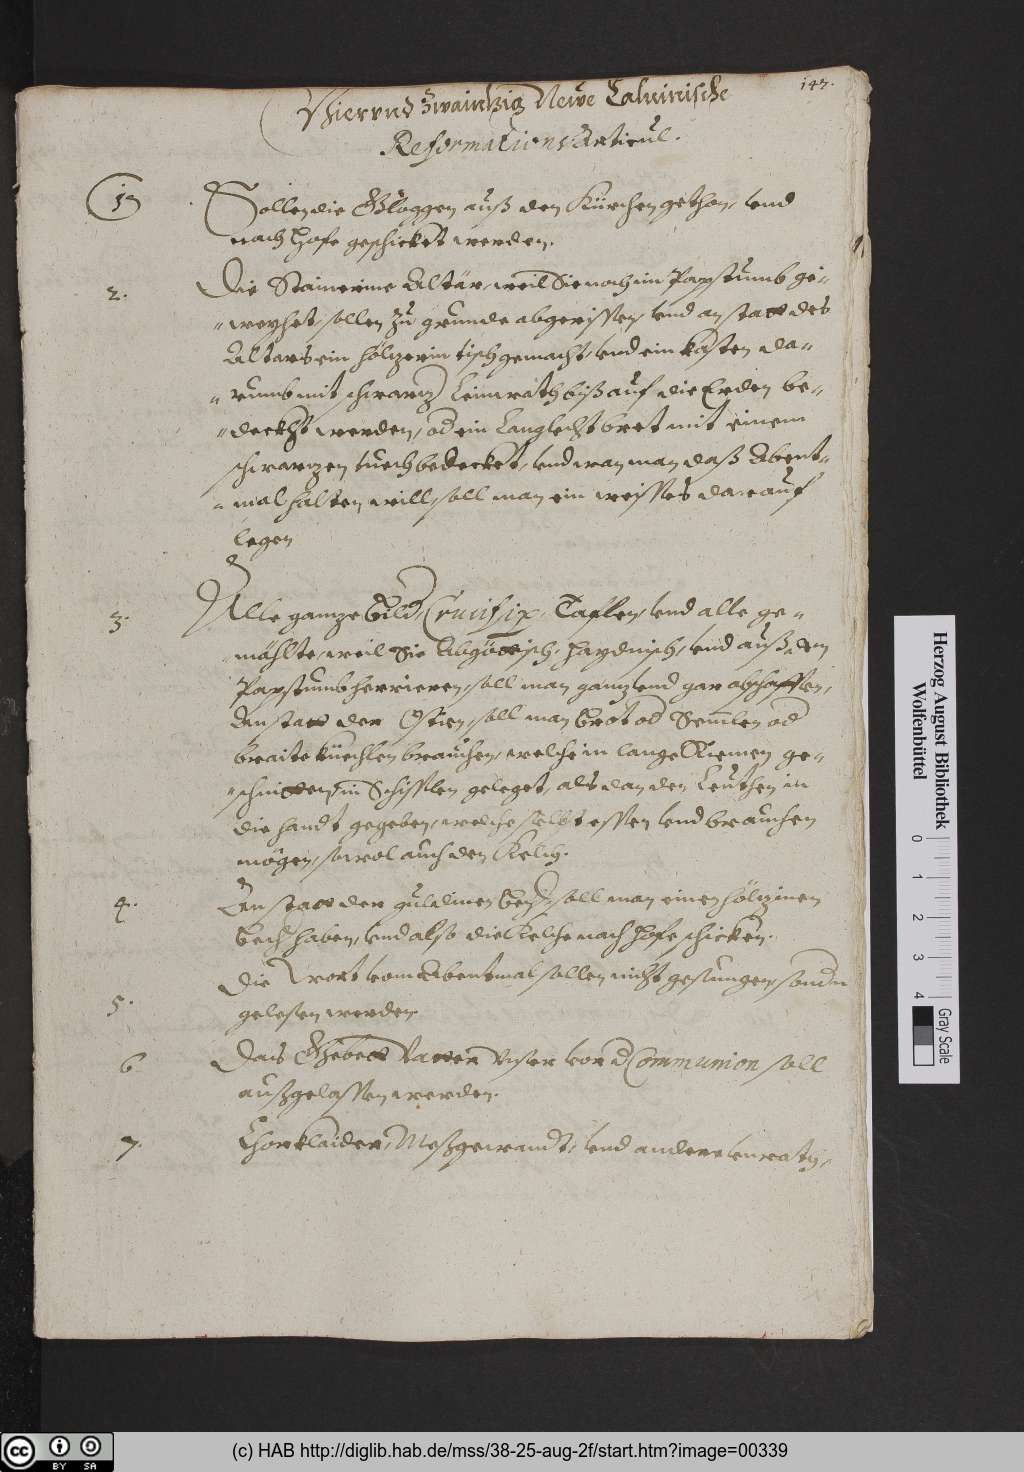 143.
Vierund Zwaintzig Newe Caluinische
Reformations Articul.
1. Sollen die Gloggen auß den Kürchen gethon, vnd
nach Hofe geschicket werden.
2. Die Stainerine Altär, weil Sie noch im Papstumb ge-
weyhet, sollen zu grunde abgerissen, vnd an statt des
Altars ein höltzerin tisch gemacht, vnd ein kasten da-
rumb mit schwartz Leinwath biß auf die Erden be-
deckht werden, od ein Langlecht bret mit einem
schwartzen tuech bedecket, vnd wan man daß Abent-
mal halten will, soll man ein weisses darauf
legen
3. Alle gantze Bild, Crucifix, Tafflen, vnd alle ge-
mählte, weil Sie Abgöttisch, Haydnisch, vnd auß dem
Papstumb herrieren, soll man gantz vnd gar abschaffen,
An statt der Ostien, soll man Brot od Semlen od
braite küechlen brauchen, welche in lange Riemen ge-
schnitten, in Schüsslen geleget, als dan den Leuthen in
die handt gegeben, welche selbst essen vnd brauchen
mögen, sowol auch den Kelch.
4. An statt der guldinen Bech, soll man einen höltzinen
Bech haben, vnd also die Kelche nach Hofe schicken.
5. Die Wort vom Abentmal sollen nicht gesungen, sondn
gelesen werden.
6 Das Gebett Vatter Vnser vor d Communion soll
außgelassen werden.
7. Chorklaider, Meßgewandt, vnd andere
Herzog August Bibliothek
Wolfenbüttel
0 1 2 3 4
Gray Scale
cc BY SA
(c) HAB http://diglib.hab.de/mss/38-25-aug-2f/start.htm?image=00339